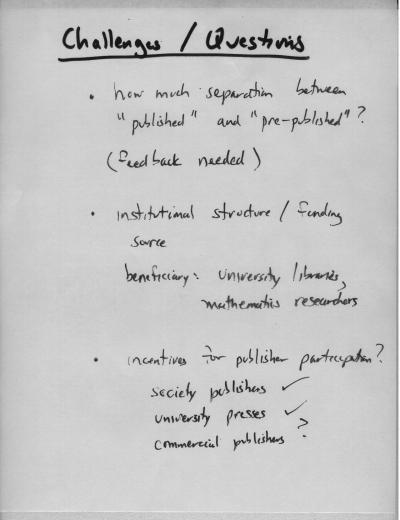 Challenges / Questions
• how much separation between
"published" and "pre-published"?
(feedback needed)
• institutional structure / funding
source
beneficiary: university libraries,
mathematics researchers
• incentives for publisher participation?
society publishers ✓
university presses ✓
commercial publishers ?